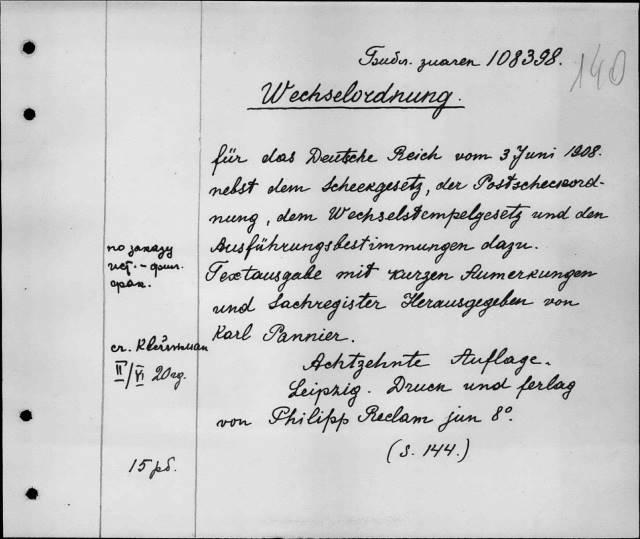 Библ. значек 108398.
140
Wechselordnung.
für das Deutsche Reich vom 3 Juni 1908.
nebst dem Scheckgesetz, der Postscheckord-
nung, dem Wechselstempelgesetz und den
Ausführungsbestimmungen dazu.
Textausgabe mit kurzen Aumerkungen
und Sachregister Herausgegeben von
Karl Pannier.
Achtzehnte Auflage.
Leipzig. Druck und ferlag
von Philipp Reclam jun 8°.
(S. 144.)
по заказу
ист.-фил.
фак.
ст.
II/VI 20 г.
15 рб.